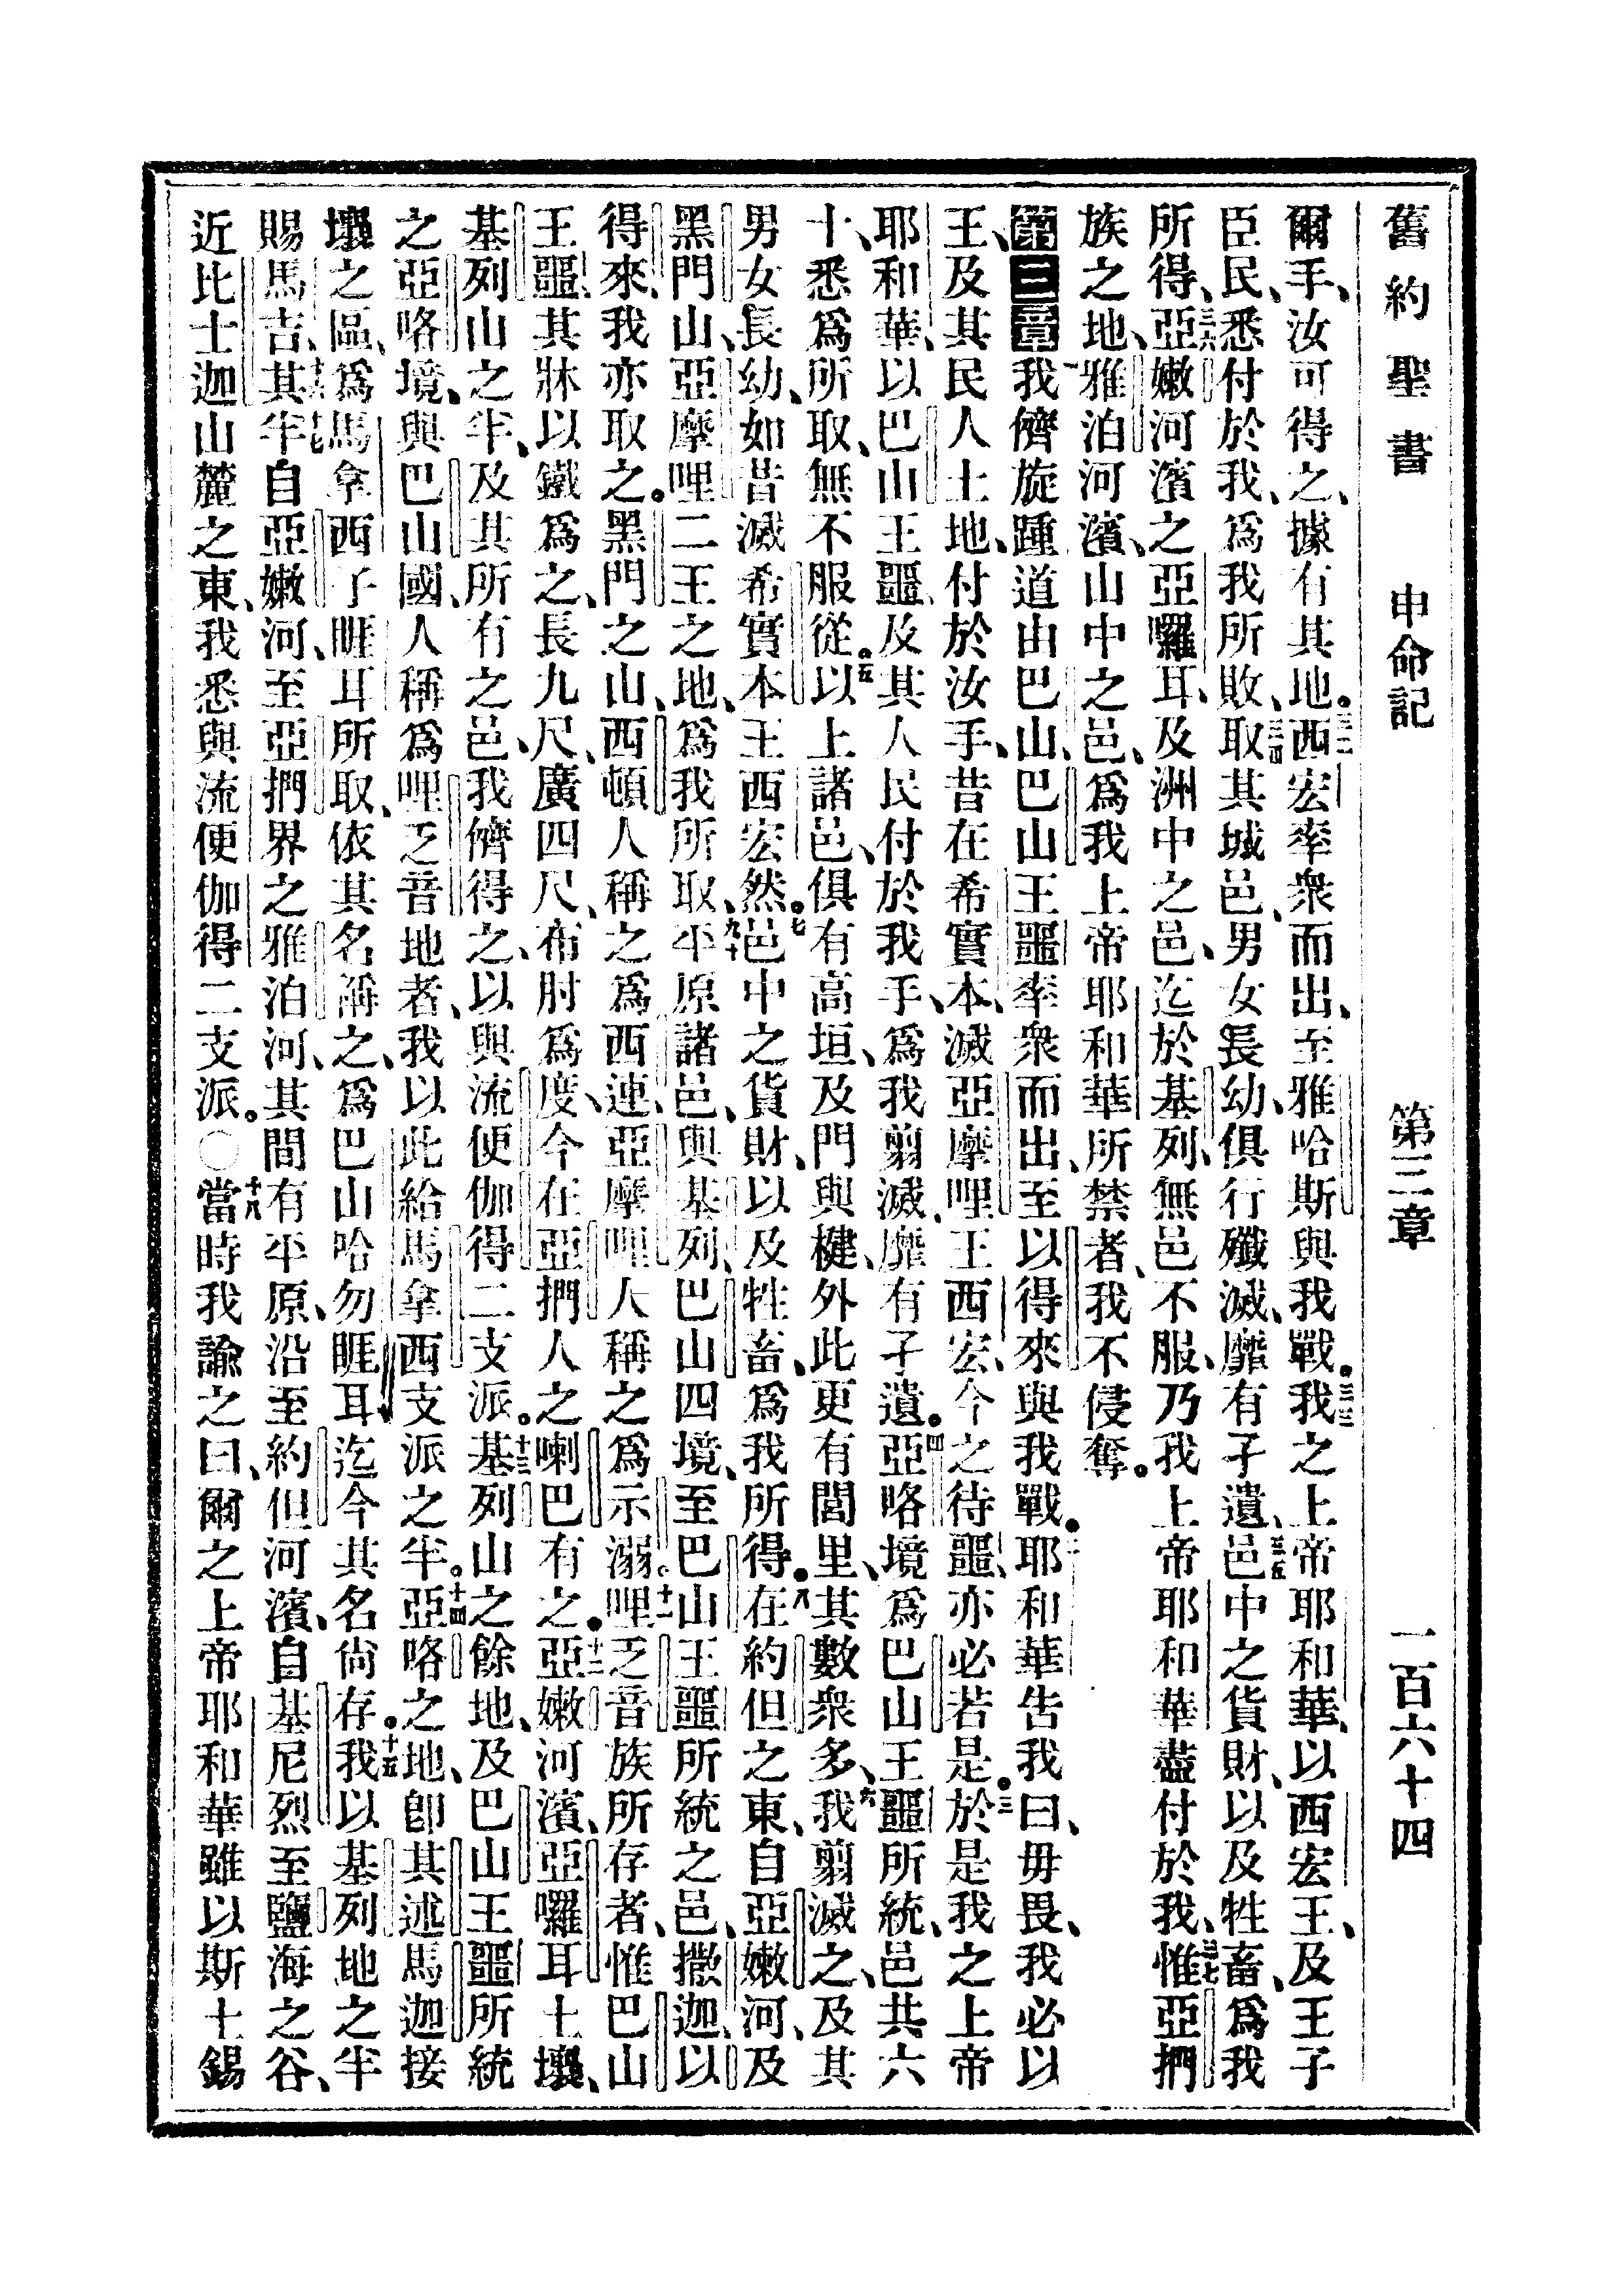 舊約聖書 申命記 第三章 一百六十四
爾手、汝可得之、據有其地。三二西宏率衆而出、至雅哈斯與我戰。三三我之上帝耶和華、以西宏王、及王子
臣民、悉付於我、爲我所敗、三四取其城邑、男女長幼、俱行殲滅、靡有孑遺、三五邑中之貨財、以及牲畜、爲我
所得、三六亞嫩河濱之亞囉耳、及洲中之邑、迄於基列、無邑不服、乃我上帝耶和華盡付於我、三七惟亞捫
族之地、雅泊河濱、山中之邑、爲我上帝耶和華所禁者、我不侵奪。
第三章一我儕旋踵道由巴山、巴山王噩率衆而出、至以得來與我戰。二耶和華告我曰、毋畏、我必以
王、及其民人土地、付於汝手、昔在希實本、滅亞摩哩王西宏、今之待噩、亦必若是。三於是我之上帝
耶和華、以巴山王噩、及其人民付於我手、爲我翦滅、靡有孑遺。四亞咯境爲巴山王噩所統、邑共六
十、悉爲所取、無不服從。五以上諸邑、俱有高垣、及門與楗、外此更有閭里、其數衆多、六我翦滅之、及其
男女長幼、如昔滅希實本王西宏然。七邑中之貨財、以及牲畜、爲我所得。八在約但之東、自亞嫩河、及
黑門山、亞摩哩二王之地、爲我所取、九十平原諸邑、與基列、巴山四境、至巴山王噩所統之邑、撒迦、以
得來、我亦取之。黑門之山、西頓人稱之爲西連、亞摩哩人稱之爲示溺。十一哩乏音族所存者、惟巴山
王噩、其牀以鐵爲之、長九尺、廣四尺、布肘爲度、今在亞捫人之喇巴有之。十二亞嫩河濱、亞囉耳土壤、
基列山之半、及其所有之邑、我儕得之、以與流便伽得二支派。十三基列山之餘地、及巴山王噩所統
之亞咯境、與巴山國、人稱爲哩乏音地者、我以此給馬拿西支派之半。十四亞咯之地、卽其述馬迦接
壤之區、爲馬拿西子睚耳所取、依其名稱之、爲巴山哈勿睚耳、迄今其名尙存。十五我以基列地之半
賜馬吉、十六十七其半自亞嫩河、至亞捫界之雅泊河、其間有平原、沿至約但河濱、自基尼烈至鹽海之谷、
近比士迦山麓之東、我悉與流便伽得二支派。〇十八當時我諭之曰、爾之上帝耶和華雖以斯土錫